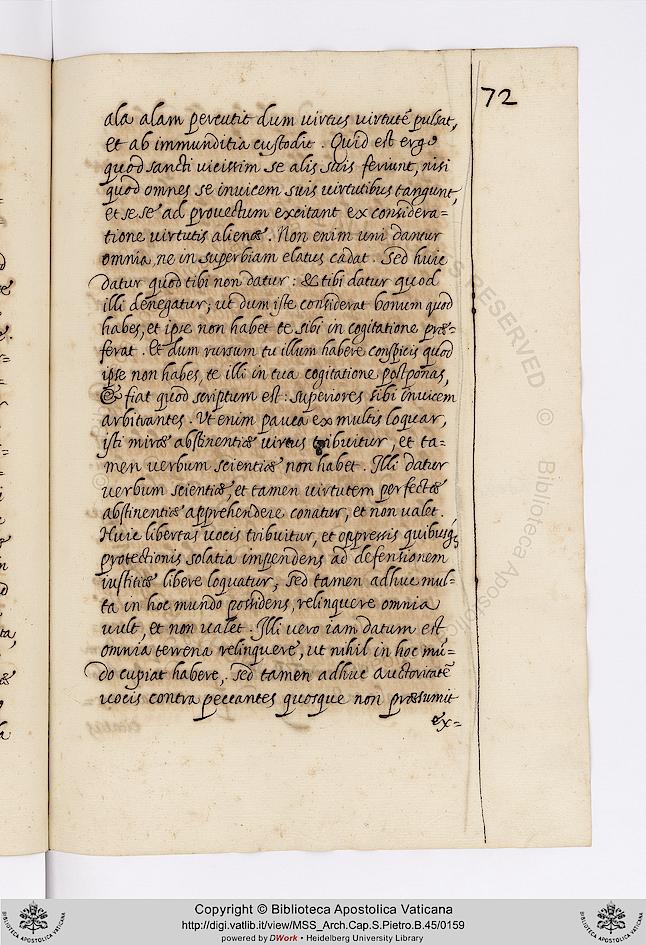 72
ala alam percutit dum uirtus uirtutē pulsat,
et ab immunditia custodit. Quid est ergo
quod sancti uicissim se alis suis feriunt, nisi
quod omnes se inuicem suis uirtutibus tangunt,
et se se ad prouectum excitant ex considera=
tione uirtutis alienæ. Non enim uni dantur
omnia, ne in superbiam elatus cadat. Sed huic
datur quod tibi non datur: & tibi datur quod
illi denegatur; ut dum iste considerat bonum quod
habes, et ipse non habet te sibi in cogitatione præ=
ferat. Et dum rursum tu illum habere conspicis quod
ipse non habes, te illi in tua cogitatione postponas,
& fiat quod scriptum est: superiores sibi inuicem
arbitrantes. Ut enim pauca ex multis loquar,
isti miræ abstinentiæ uirtus tribuitur, et ta=
men uerbum scientiæ non habet. Illi datur
uerbum scientiæ, et tamen uirtutem perfectæ
abstinentiæ apprehendere conatur, et non ualet.
Huic libertas uocis tribuitur, et oppressis quibusq;
protectionis solatia impendens ad defensionem
iustitiæ libere loquatur, sed tamen adhuc mul=
ta in hoc mundo possidens, relinquere omnia
uult, et non ualet. Illi uero iam datum est
omnia terrena relinquere, ut nihil in hoc mū=
do cupiat habere, sed tamen adhuc auctoritatē
uocis contra peccantes quosque non præsumit
ex=
Copyright © Biblioteca Apostolica Vaticana
http://digi.vatlib.it/view/MSS_Arch.Cap.S.Pietro.B.45/0159
powered by DWork • Heidelberg University Library